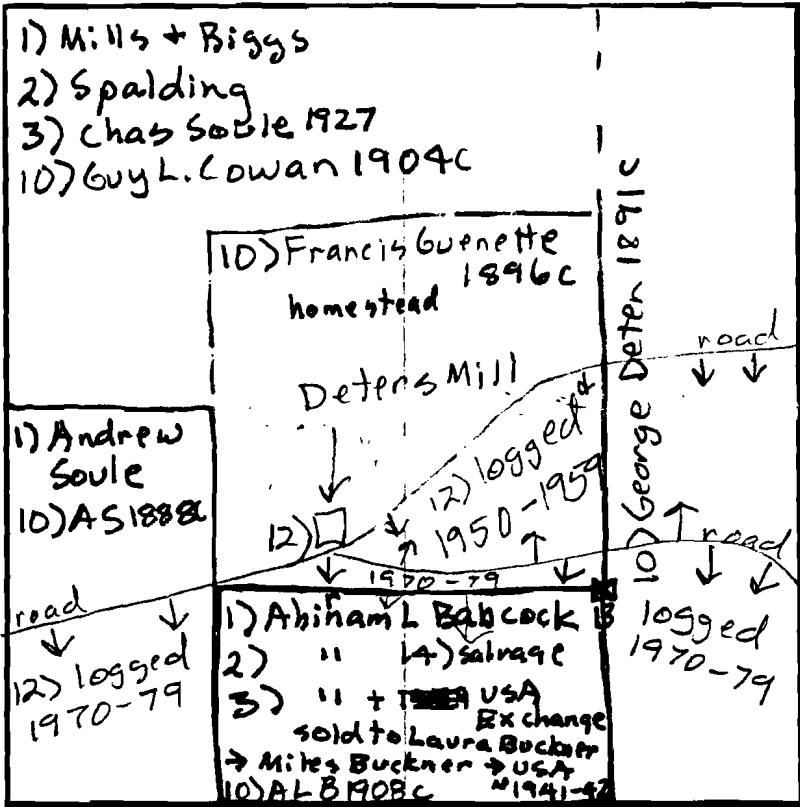 1) Mills + Biggs
2) Spalding
3) Chas Soule 1927
10) Guy L. Cowan 1904c
10) Francis Guenette
1896c
homestead
10) George Deter 1891c
road
Deters Mill
1) Andrew
Soule
10) AS 1888c
12) logged
1950-1959
12)
road
1970-79
road
12) logged
1970-79
logged
1970-79
1) Ahinam L Babcock
2) " 14) salvage
3) " + USA
Exchange
sold to Laura Buckner
→ Miles Buckner → USA
10) ALB 1908c ~1941-42